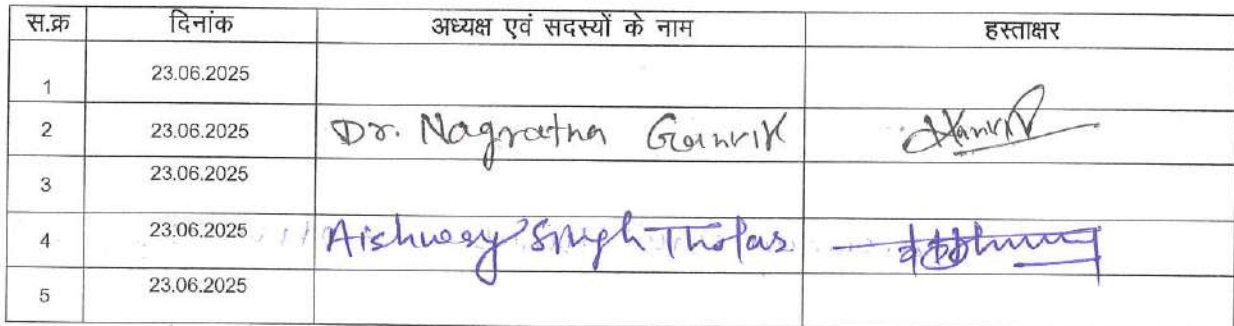 स.क्र दिनांक अध्यक्ष एवं सदस्यों के नाम हस्ताक्षर
1 23.06.2025
2 23.06.2025 Dr. Nagratna Ganvir
3 23.06.2025
4 23.06.2025 Singh
5 23.06.2025